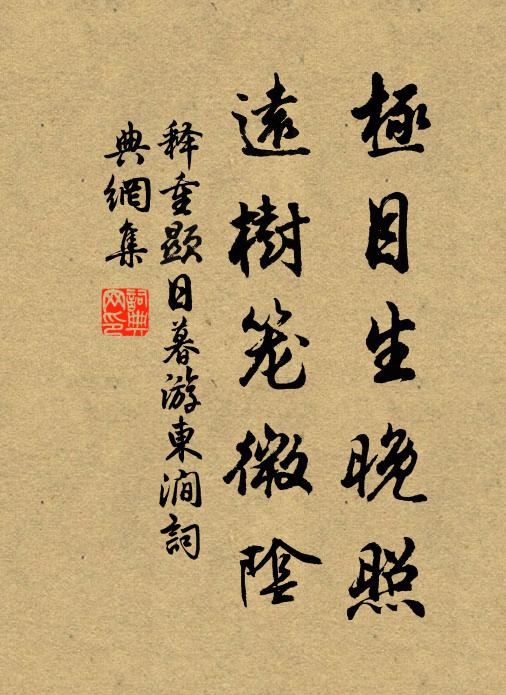 極目生晚照
遠樹笼微陰
释重顯日暮游東澗詞
典網集
詞典網印